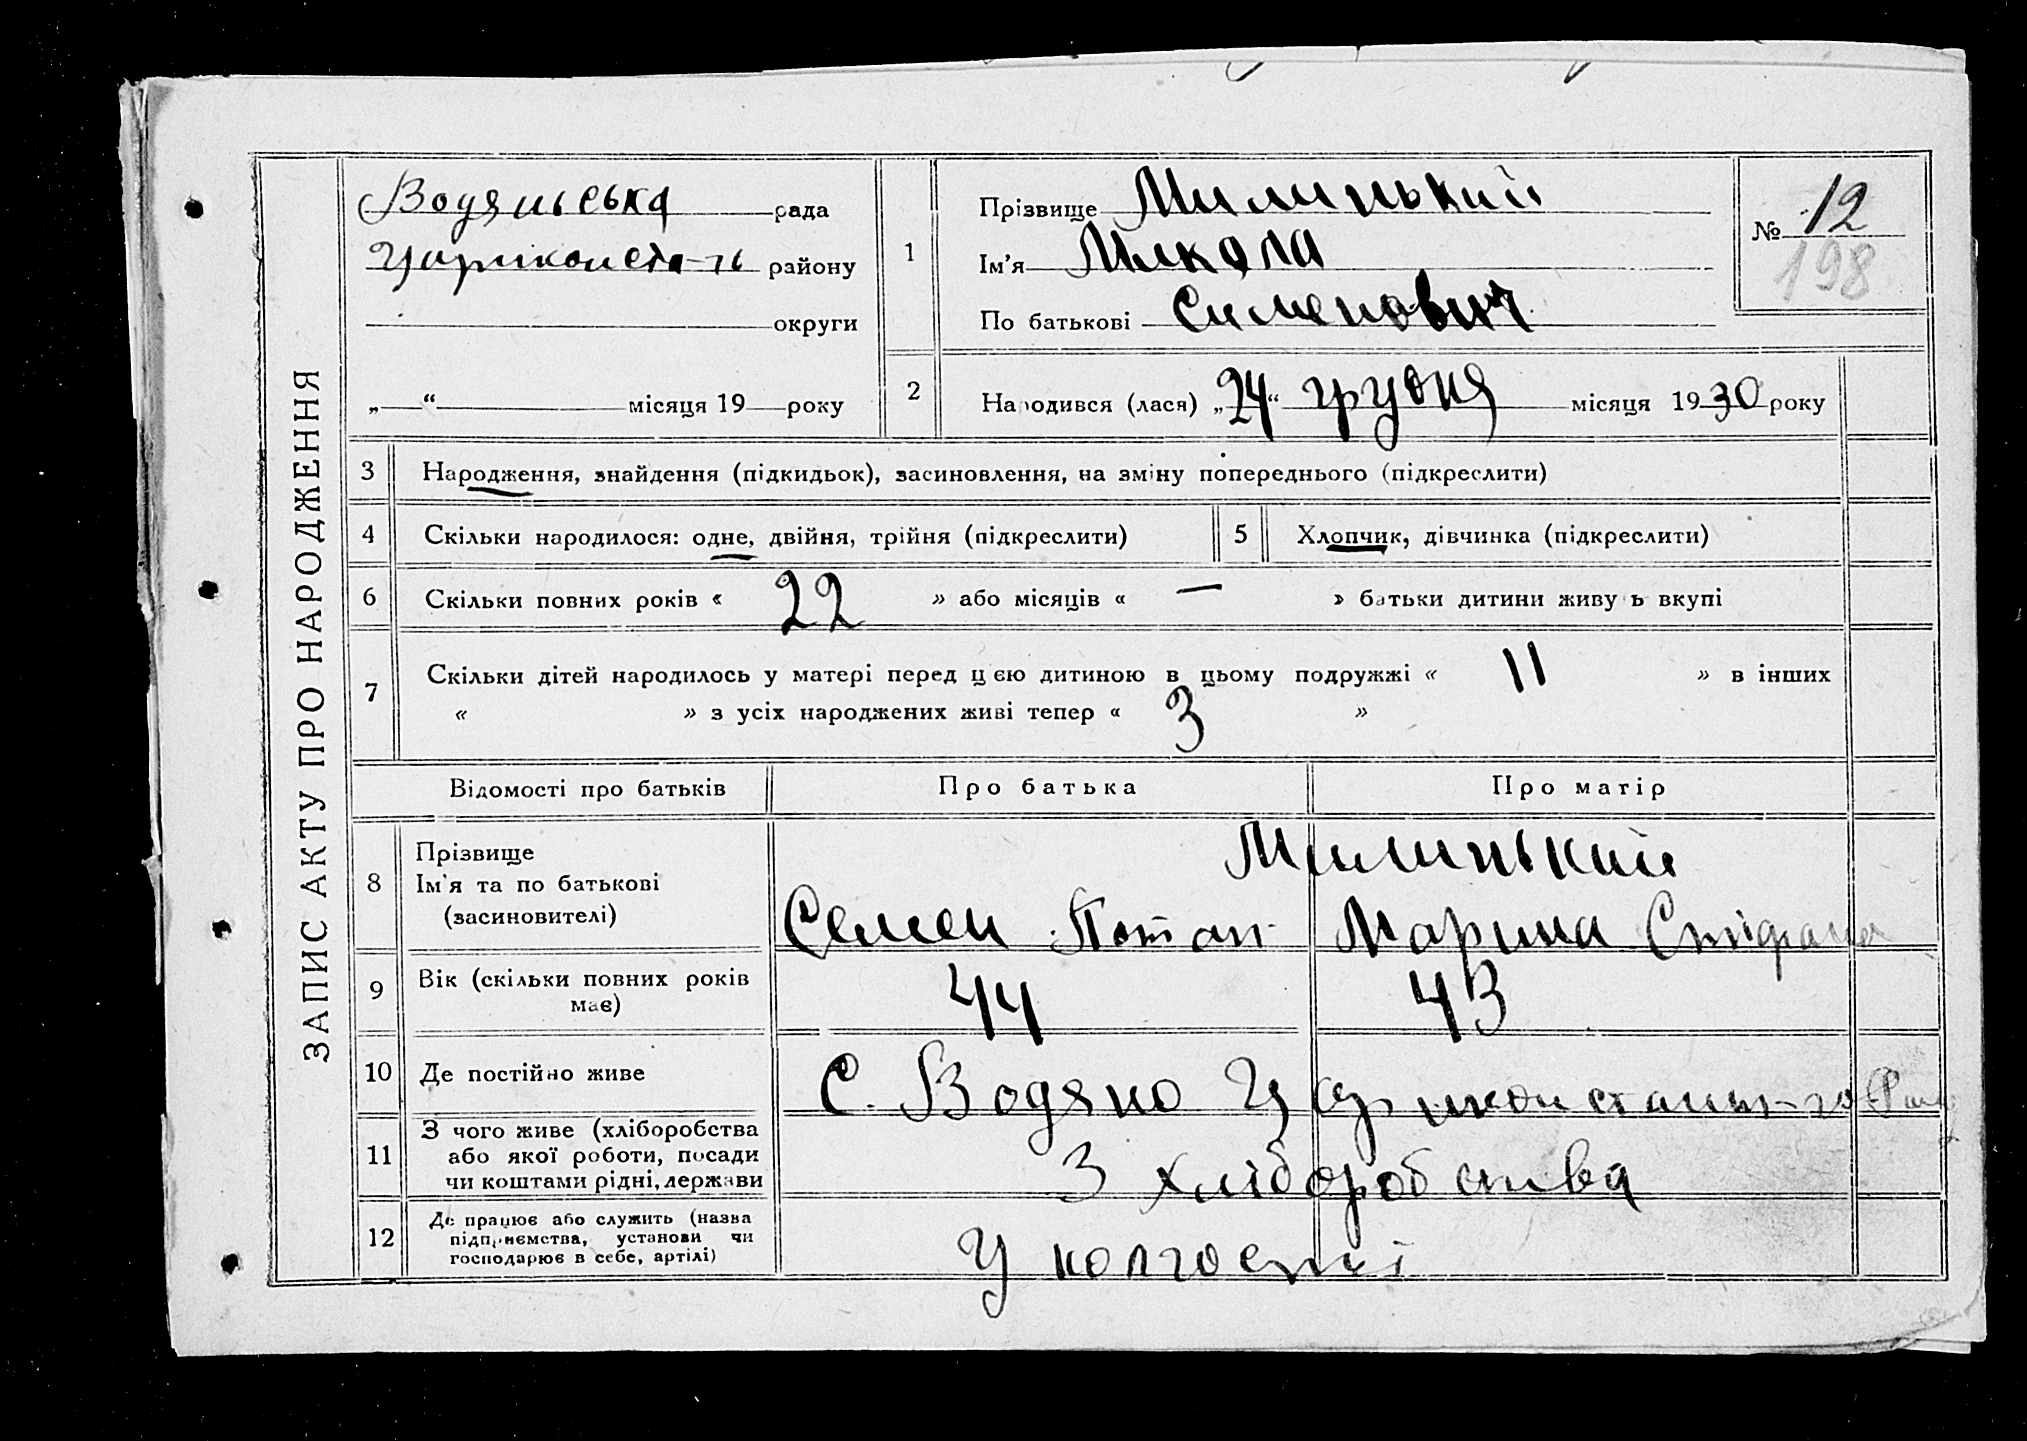 ЗАПИС АКТУ ПРО НАРОДЖЕННЯ
Водянська рада
района
округи
„ “ місяця 19 року
1
Прізвище Милинький
Ім'я Микола
По батькові Сименович
№ 12
198
2
Народився (лася) „24“ грудня місяця 1930 року
3 Народження, знайдення (підкидьок), засиновлення, на зміну попереднього (підкреслити)
4 Скільки народилося: одне, двійня, трійня (підкреслити) 5 Хлопчик, дівчинка (підкреслити)
6 Скільки повних років « 22 » або місяців « — » батьки дитини живуть вкупі
7 Скільки дітей народилось у матері перед цією дитиною в цьому подружжі « 11 » в інших
« » з усіх народжених живі тепер « 3 »
Відомості про батьків Про батька Про матір
8 Прізвище
Ім'я та по батькові
(засиновителі)
Милинький
Семен Потап Марина
9 Вік (скільки повних років
має)
44 43
10 Де постійно живе С. Водяно
11 З чого живе (хліборобства
або якої роботи, посади
чи коштами рідні, держави
З хліборобства
12 Де працює або служить (назва
підприємства, установи чи
господарює в себе, артілі)
У колгоспі